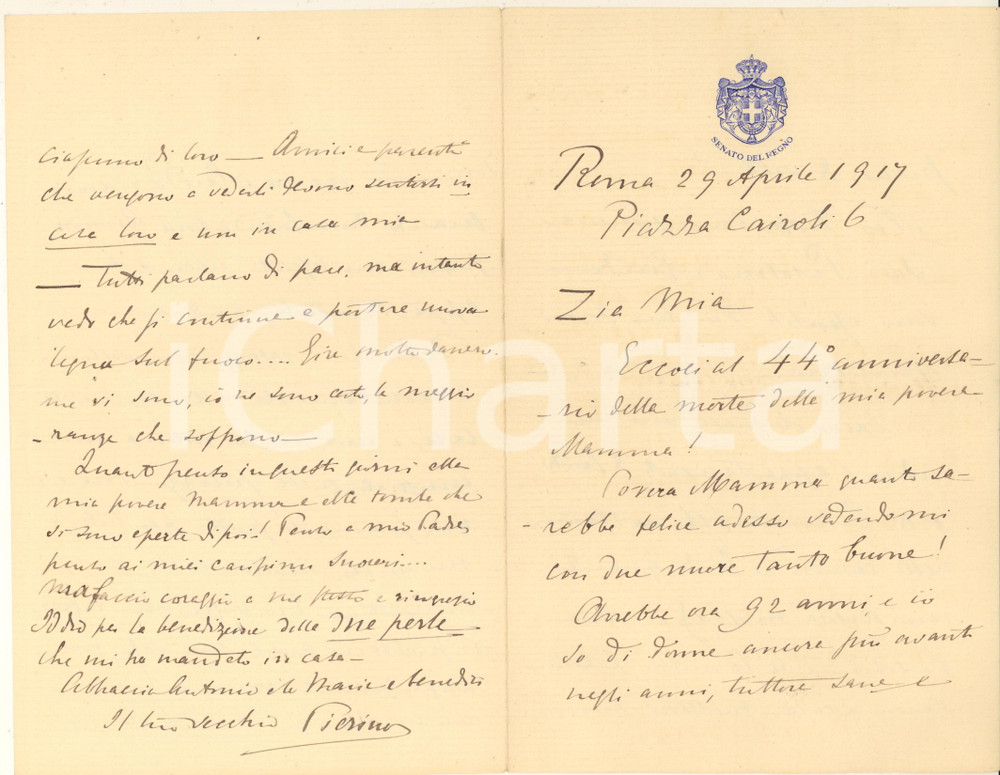 SENATO DEL REGNO
Roma 29 Aprile 1917
Piazza Cairoli 6
Zia Mia
Eccoci al 44° anniversa-
-rio della morte della mia povera
Mamma!
Povera Mamma quanto sa-
-rebbe felice adesso vedendomi
con due nuore tanto buone!
Avrebbe ora 92 anni, e io
so di donne ancora più avanti
negli anni, tuttora sane e
ciascuno di loro — Amici e parenti
che vengono a vederli devono sentirsi in
casa loro e non in casa mia
— Tutti parlano di pace, ma intanto
vedo che si continua a portare nuova
legna sul fuoco....
me vi sono, io ne sono certo, la maggio
-ranza che soffrono —
Quanto penso in questi giorni alla
mia povera Mamma e alle tombe che
si sono aperte di poi! Penso a mio Padre
penso ai miei carissimi Suoceri....
Ma faccio coraggio a me stesso e ringrazio
Iddio per la benedizione delle due perle
che mi ha mandato in casa —
Abbraccia Antonio e la Maria e benedici
Il tuo vecchio Pierino
iCharta